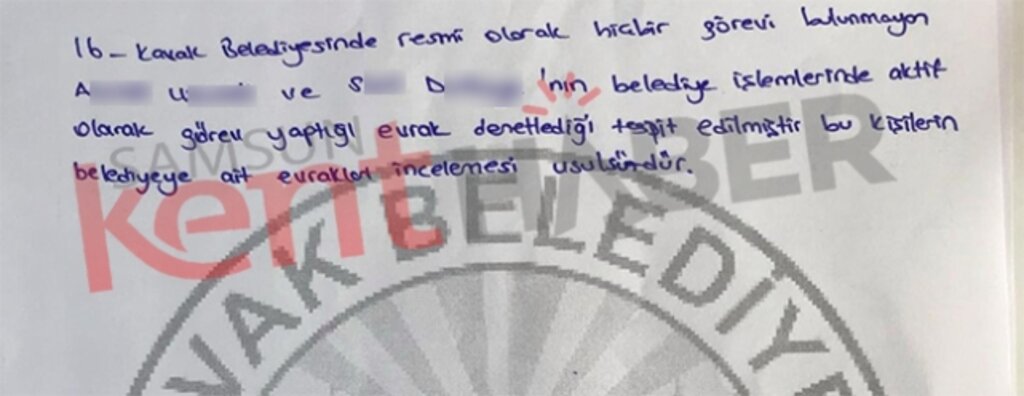 16- Kavak Belediyesinde resmi olarak hiçbir görevi bulunmayan
A U ve S D 'nin belediye işlemlerinde aktif
olarak görev yaptığı evrak denetlediği tespit edilmiştir bu kişilerin
belediyeye ait evrakları incelemesi usulsüzdür.
SAMSUN
kent HABER
VAK BELEDİYE